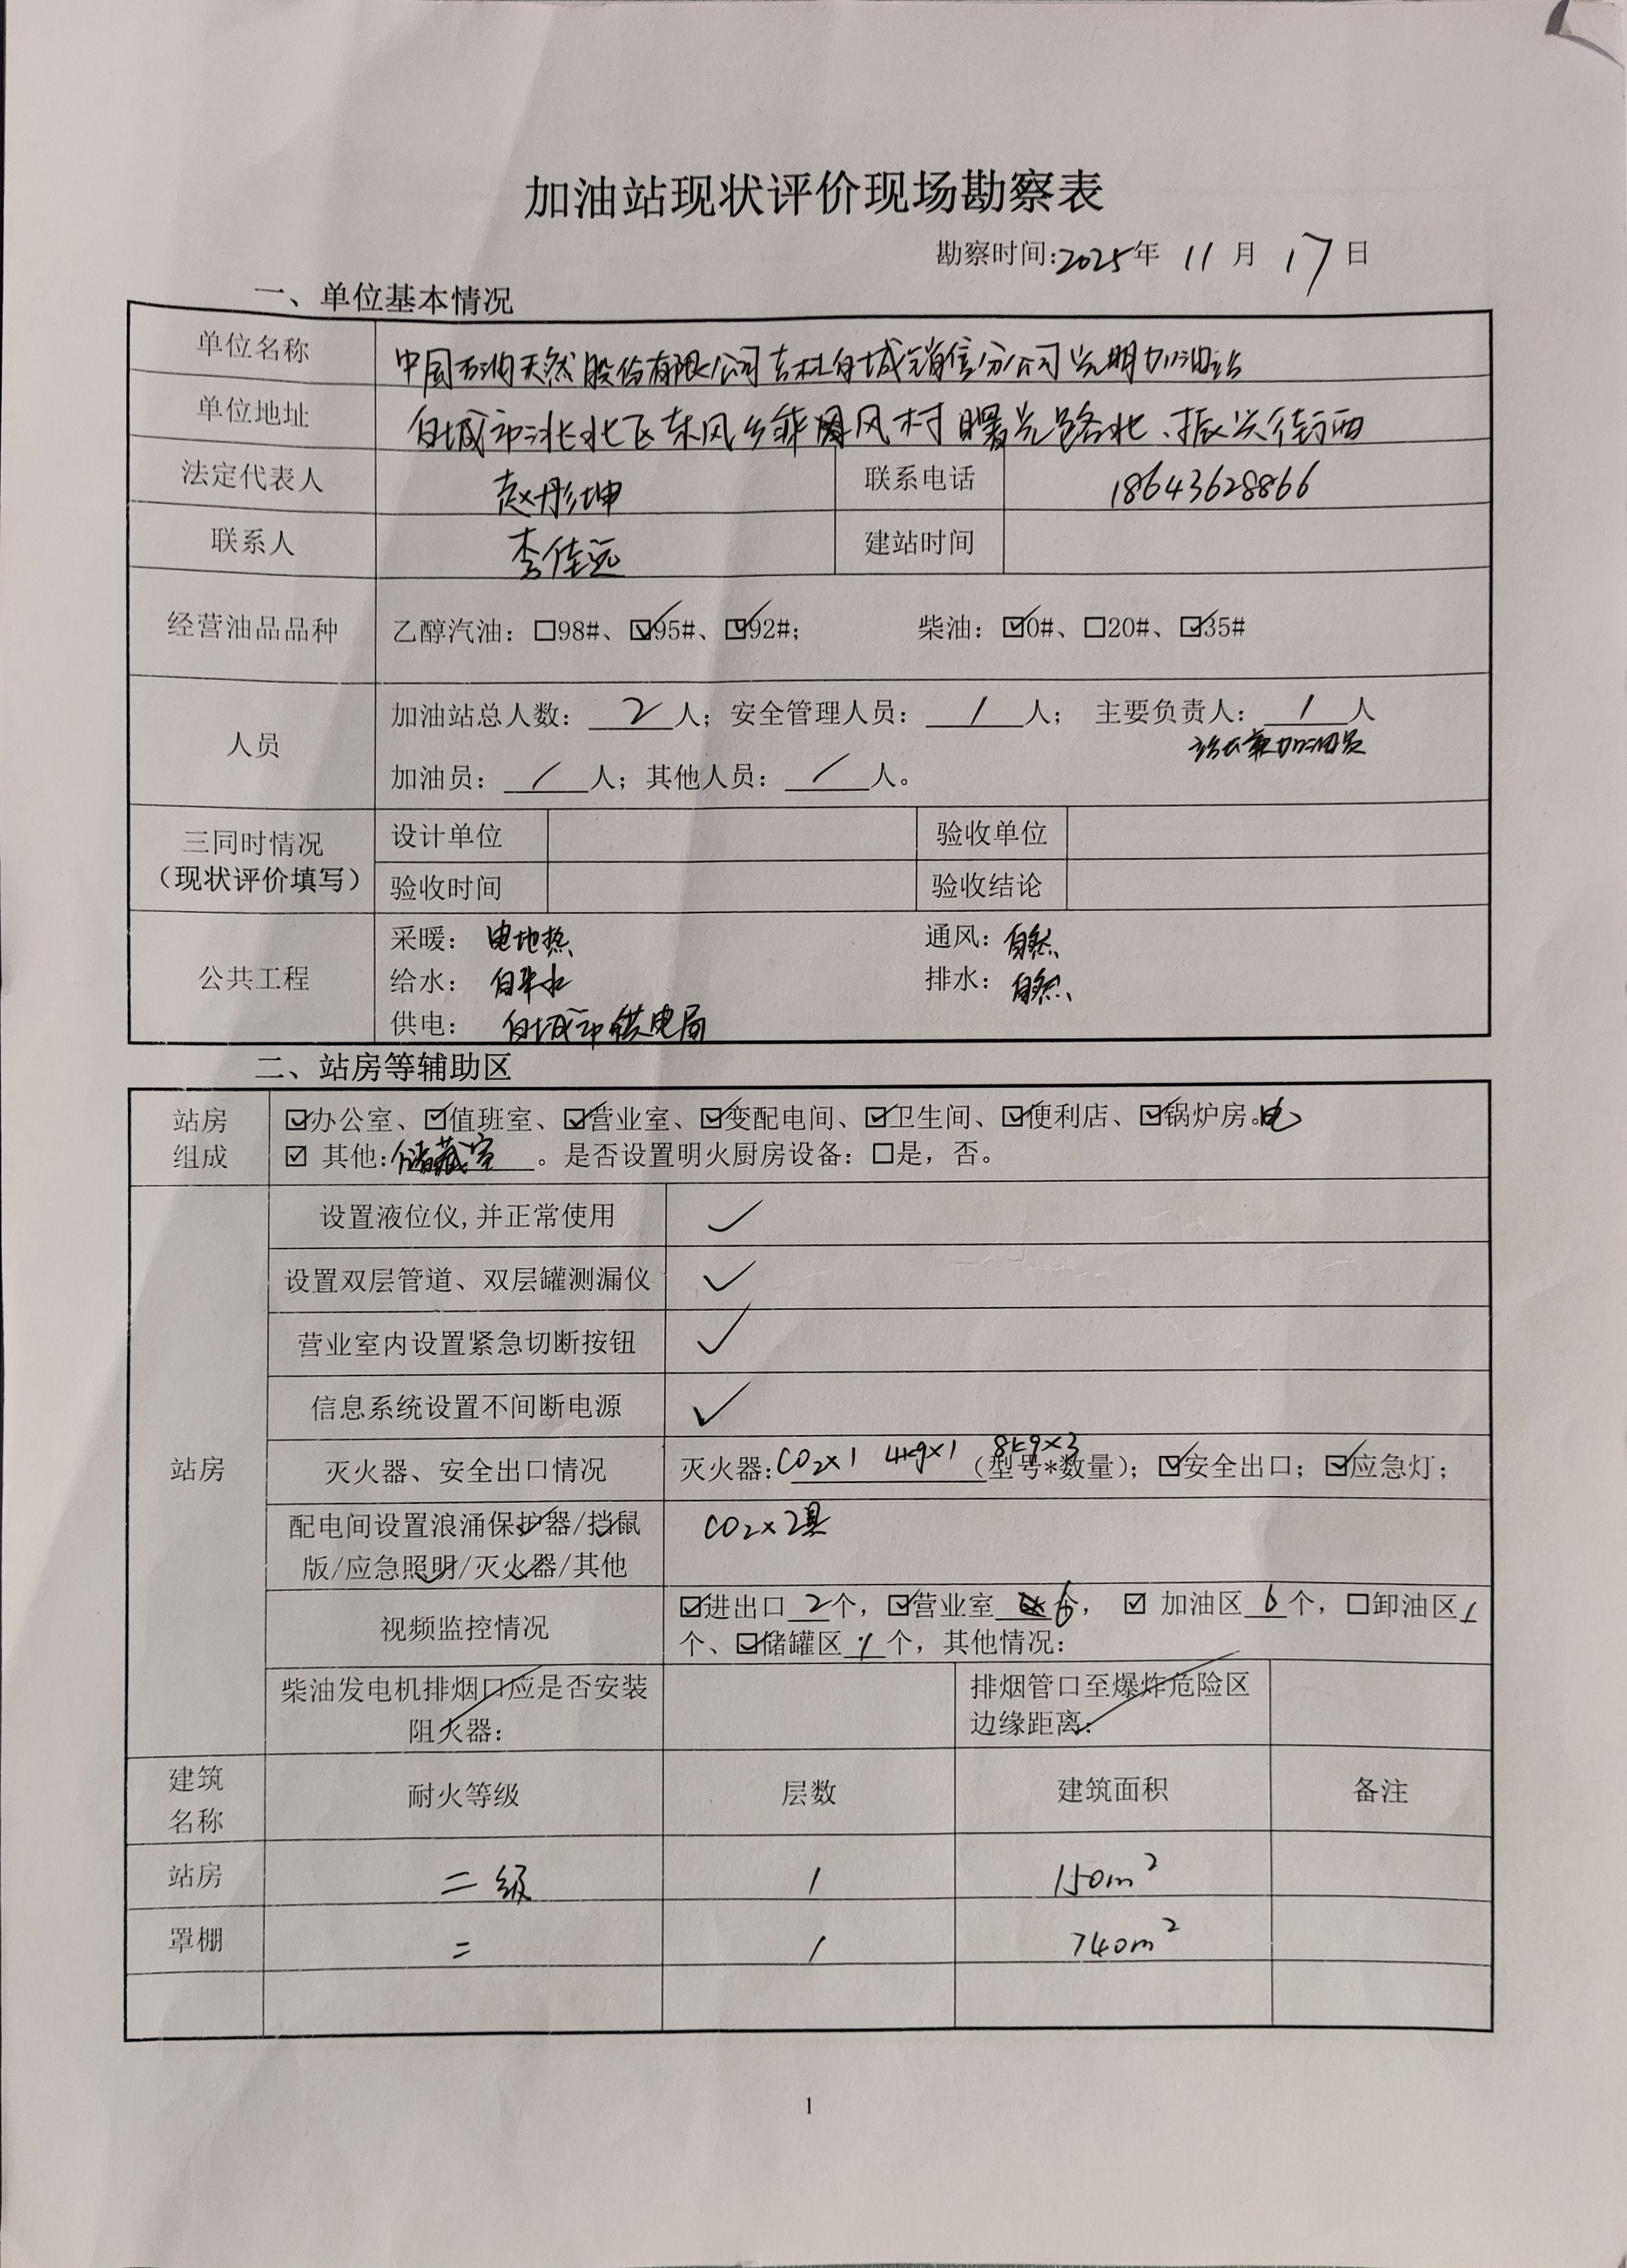 加油站现状评价现场勘察表
勘察时间:2025年 11 月 17 日
一、单位基本情况
单位名称 中国石油天然股份有限公司吉林白城销售分公司光明加油站
单位地址 白城市洮北区东风乡 风村曙光路北、振兴街西
法定代表人 赵彤坤 联系电话 18643628866
联系人 李佳远 建站时间
经营油品品种 乙醇汽油：☐98#、☑95#、☑92#； 柴油：☑0#、☐20#、☑35#
人员 加油站总人数： 2 人；安全管理人员： 1 人； 主要负责人： 1 人
站长兼加油员
加油员： / 人；其他人员： / 人。
三同时情况
（现状评价填写）
设计单位 验收单位
验收时间 验收结论
公共工程
采暖： 电地热 通风：自然
给水： 自来水 排水：自然
供电： 白城市供电局
二、站房等辅助区
站房
组成
☑办公室、☑值班室、☑营业室、☑变配电间、☑卫生间、☑便利店、☑锅炉房。电
☑ 其他:储藏室 。是否设置明火厨房设备：☐是，否。
站房
设置液位仪,并正常使用 ✓
设置双层管道、双层罐测漏仪 ✓
营业室内设置紧急切断按钮 ✓
信息系统设置不间断电源 ✓
灭火器、安全出口情况 灭火器:CO2×1 4kg×1 8kg×3（型号*数量）；☑安全出口；☑应急灯；
配电间设置浪涌保护器/挡鼠
版/应急照明/灭火器/其他
CO2×2具
视频监控情况
☑进出口 2个，☑营业室 6个， ☑ 加油区 6 个，☐卸油区1
个、☑储罐区 1 个，其他情况：
柴油发电机排烟口应是否安装
阻火器：
排烟管口至爆炸危险区
边缘距离：
建筑
名称
耐火等级 层数 建筑面积 备注
站房 二级 1 150m²
罩棚 二 1 740m²
1